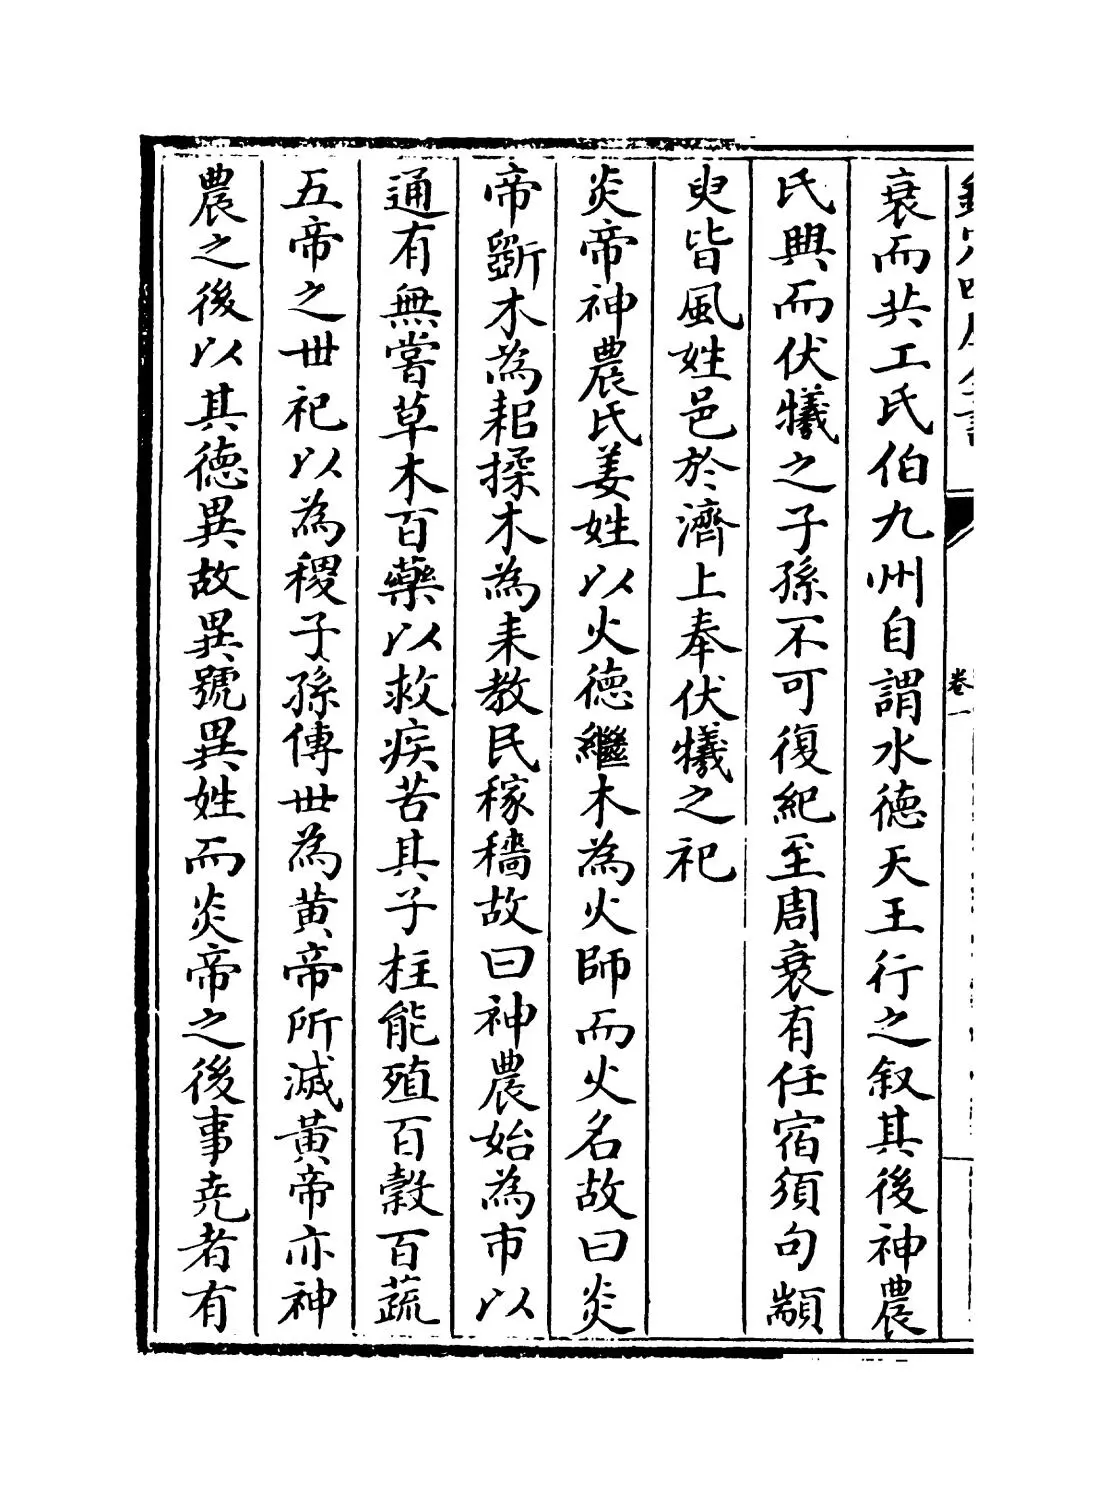 欽定四庫全書
卷一
衰而共工氏伯九州自謂水徳天王行之叙其後神農
氏興而伏犧之子孫不可復紀至周衰有任宿須句顓
臾皆風姓邑於濟上奉伏犧之祀
炎帝神農氏姜姓以火徳繼木為火師而火名故曰炎
帝斵木為耜揉木為耒教民稼穡故曰神農始為市以
通有無嘗草木百藥以救疾苦其子柱能殖百穀百蔬
五帝之世祀以為稷子孫傳世為黄帝所滅黄帝亦神
農之後以其徳異故異號異姓而炎帝之後事堯者有